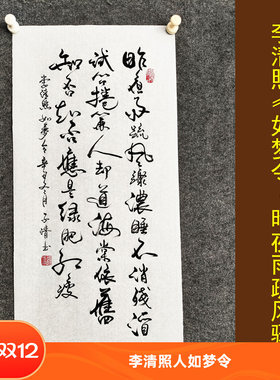 昨夜雨疏风骤浓睡不消残酒
试问捲帘人却道海棠依舊
知否知否應是绿肥红瘦
李清照如梦令
李清照《如梦令·昨夜雨疏风骤
双12
李清照人如梦令